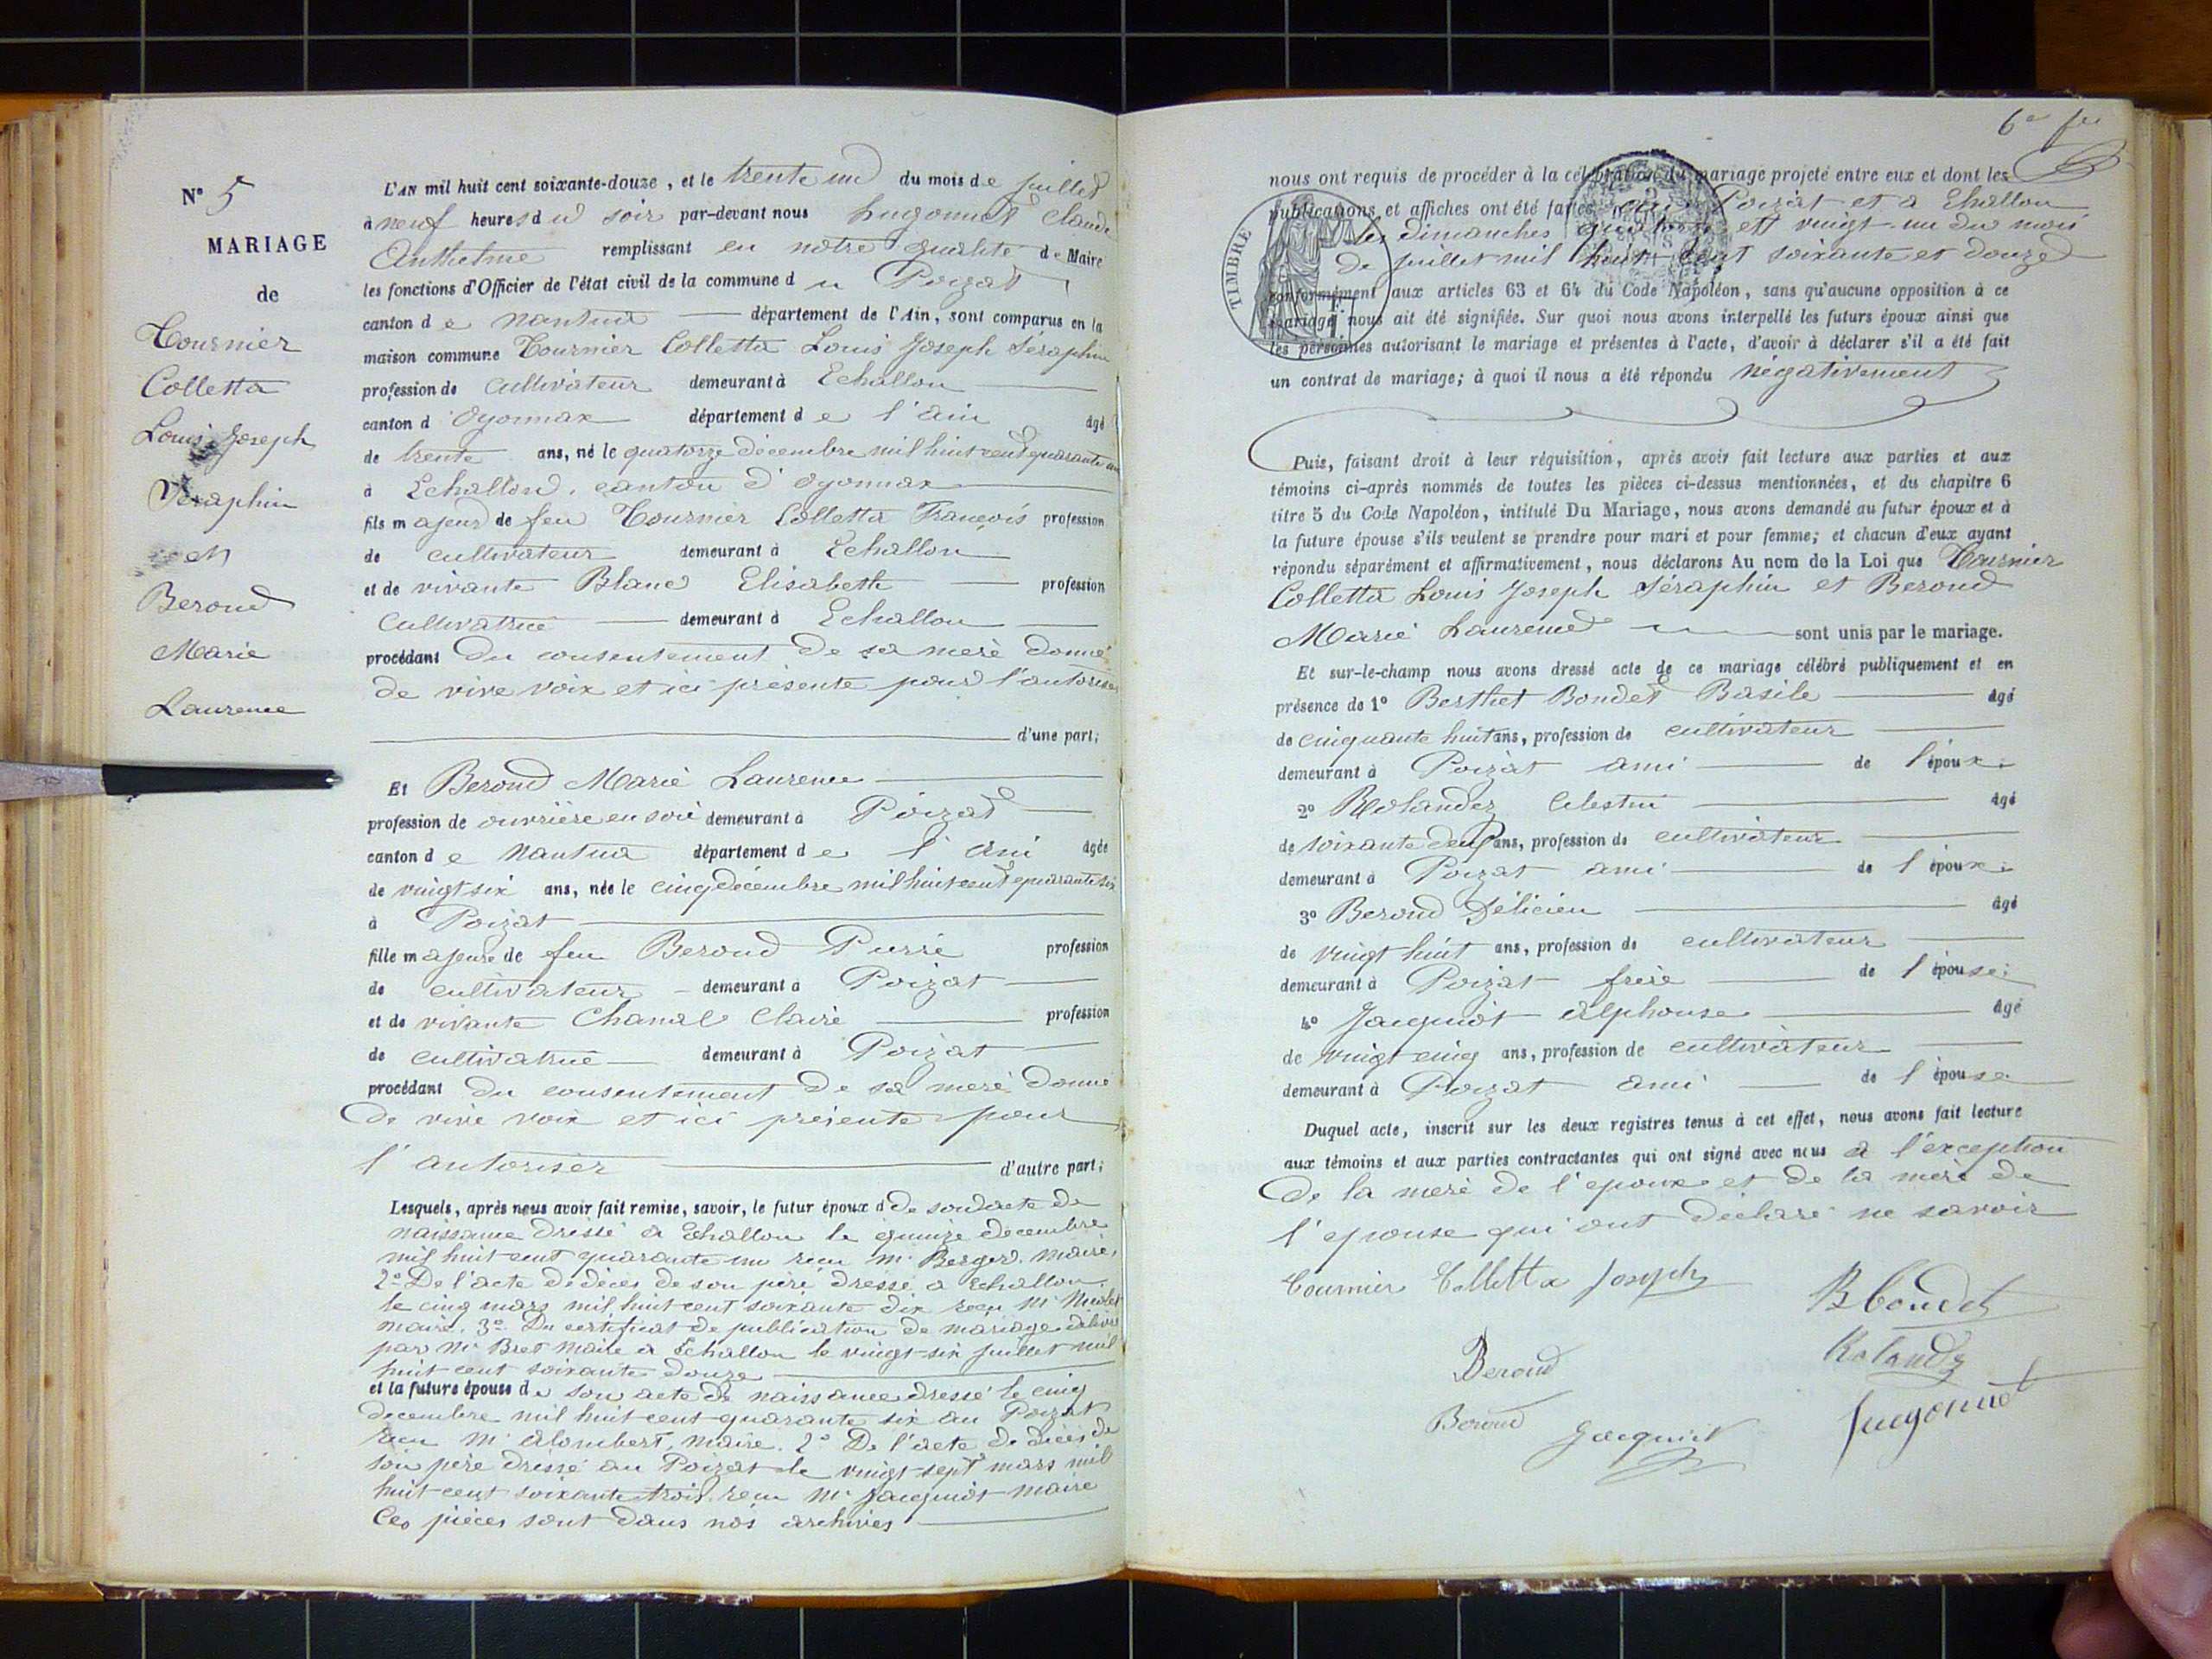 N° 5
MARIAGE
de
Tournier
Colletta
Louis Joseph
Séraphin
et
Beroud
Marie
Laurence
L'AN mil huit cent soixante-douze, et le trente un du mois de juillet
à neuf heures du soir par-devant nous Hugonnet Claude
Anthelme remplissant en notre qualité de Maire
les fonctions d'Officier de l'état civil de la commune du Poizat
canton de Nantua département de l'Ain, sont comparus en la
maison commune Tournier Colletta Louis Joseph Séraphin
profession de cultivateur demeurant à Echallon
canton d'Oyonnax département de l'ain âgé
de trente ans, né le quatorze décembre mil huit cent quarante un
à Echallon, canton d'Oyonnax
fils majeur de feu Tournier Colletta François profession
de cultivateur demeurant à Echallon
et de vivante Blanc Elisabeth profession
cultivatrice demeurant à Echallon
procédant du consentement de sa mère donné
de vive voix et ici présente pour l'autoriser
d'une part;
Et Beroud Marie Laurence
profession de ouvrière en soie demeurant à Poizat
canton de Nantua département de l'Ain âgée
de vingt six ans, née le cinq décembre mil huit cent quarante six
à Poizat
fille majeure de feu Beroud Pierre profession
de cultivateur demeurant à Poizat
et de vivante Chanal Claire profession
de cultivatrice demeurant à Poizat
procédant du consentement de sa mère donné
de vive voix et ici présente pour
l'autoriser d'autre part;
Lesquels, après nous avoir fait remise, savoir, le futur époux d de son acte de
naissance dressé à Echallon le quinze décembre
mil huit cent quarante un reçu Mr Berger, maire,
2° De l'acte de décès de son père dressé à Echallon
le cinq mars mil huit cent soixante dix reçu Mr
maire. 3° Du certificat de publication de mariage délivré
par Mr Bret Maire à Echallon le vingt-six juillet mil
huit cent soixante douze
et la future épouse de son acte de naissance dressé le cinq
décembre mil huit cent quarante six au Poizat
reçu Mr Alombert, maire. 2° De l'acte de décès de
son père dressé au Poizat le vingt-sept mars mil
huit cent soixante trois reçu Mr Jacquiot maire
Ces pièces sont dans nos archives
6e
nous ont requis de procéder à la célébration du mariage projeté entre eux et dont les
publications et affiches ont été faites au Poizat et à Echallon
les dimanches quatorze et vingt-un du mois
de juillet mil huit cent soixante et douze
conformément aux articles 63 et 64 du Code Napoléon, sans qu'aucune opposition à ce
mariage nous ait été signifiée. Sur quoi nous avons interpellé les futurs époux ainsi que
les personnes autorisant le mariage et présentes à l'acte, d'avoir à déclarer s'il a été fait
un contrat de mariage; à quoi il nous a été répondu négativement
TIMBRE
Puis, faisant droit à leur réquisition, après avoir fait lecture aux parties et aux
témoins ci-après nommés de toutes les pièces ci-dessus mentionnées, et du chapitre 6
titre 5 du Code Napoléon, intitulé Du Mariage, nous avons demandé au futur époux et à
la future épouse s'ils veulent se prendre pour mari et pour femme; et chacun d'eux ayant
répondu séparément et affirmativement, nous déclarons Au nom de la Loi que Tournier
Colletta Louis Joseph Séraphin et Beroud
Marie Laurence sont unis par le mariage.
Et sur-le-champ nous avons dressé acte de ce mariage célébré publiquement et en
présence de 1° Berthet Bondet Basile âgé
de cinquante huit ans, profession de cultivateur
demeurant à Poizat ami de l'époux.
2° Rolandez Celestin âgé
de soixante deux ans, profession de cultivateur
demeurant à Poizat ami de l'époux.
3° Beroud Félicien âgé
de vingt huit ans, profession de cultivateur
demeurant à Poizat frère de l'épouse;
4° Jacquiot Alphonse âgé
de vingt cinq ans, profession de cultivateur
demeurant à Poizat ami de l'épouse
Duquel acte, inscrit sur les deux registres tenus à cet effet, nous avons fait lecture
aux témoins et aux parties contractantes qui ont signé avec nous à l'exception
de la mère de l'époux et de la mère de
l'épouse qui ont déclaré ne savoir
Tournier Colletta Joseph
B Bondet
Beroud
Rolandez
Beroud Jacquiot
hugonnet